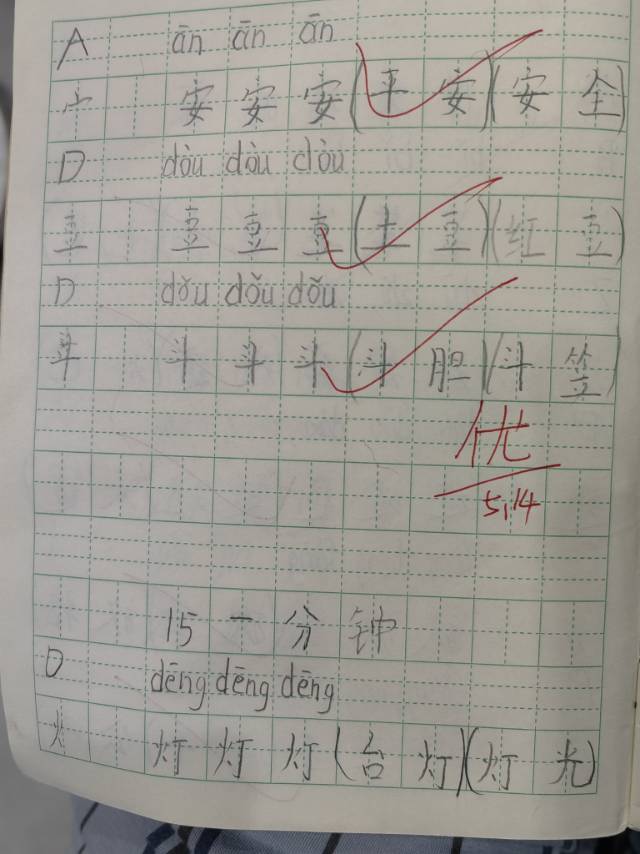 A ān ān ān
宀 安 安 安(平 安)(安 全)
D dòu dòu dòu
豆 豆 豆 豆(土 豆)(红 豆)
D dǒu dǒu dǒu
斗 斗 斗 斗(斗 胆)(斗 笠)
优
5,14
15 一 分 钟
D dēng dēng dēng
火 灯 灯 灯(台 灯)(灯 光)